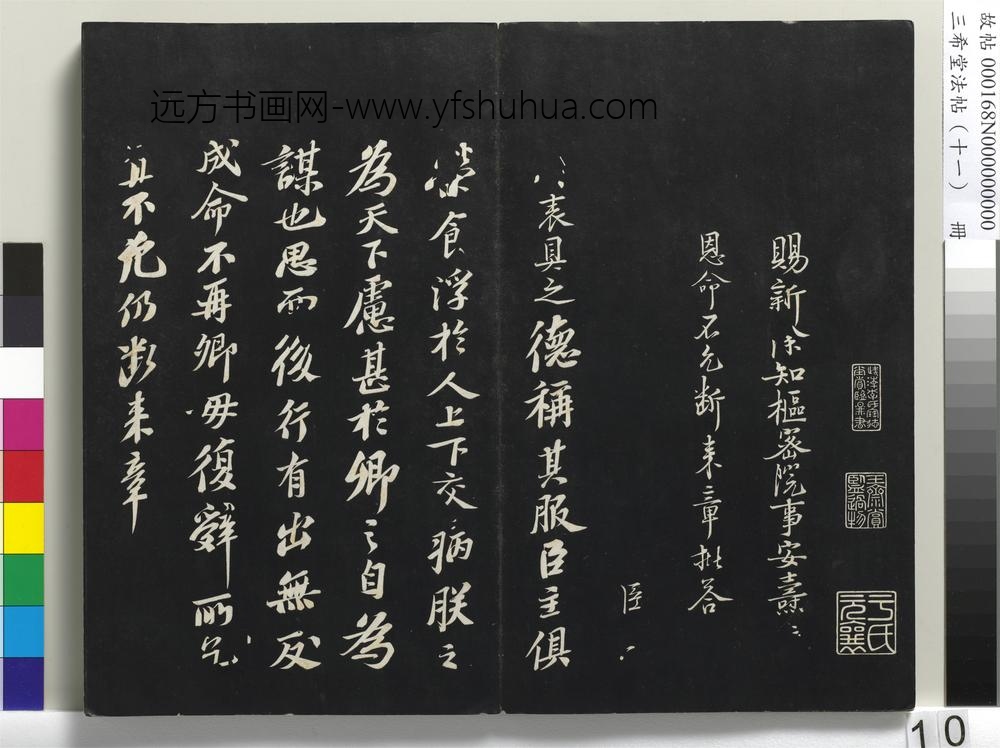 故帖 000168N000000000
三希堂法帖（十一） 冊
远方书画网-www.yfshuhua.com
賜新除知樞密院事安燾
恩命不允斷來章批荅
臣
表具之德稱其服臣主俱
榮食浮於人上下交病朕之
為天下慮甚於卿之自為
謀也思而後行有出無反
成命不再卿毋復辭所乞
宜不允仍斷來章
10